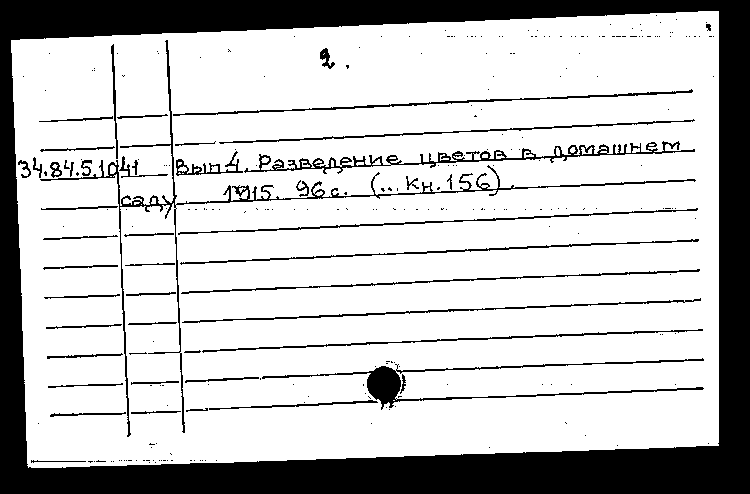 2.
34.84.5.1041 Вып 4. Разведение цветов в домашнем
саду 1915. 96 с. (... Кн. 156).